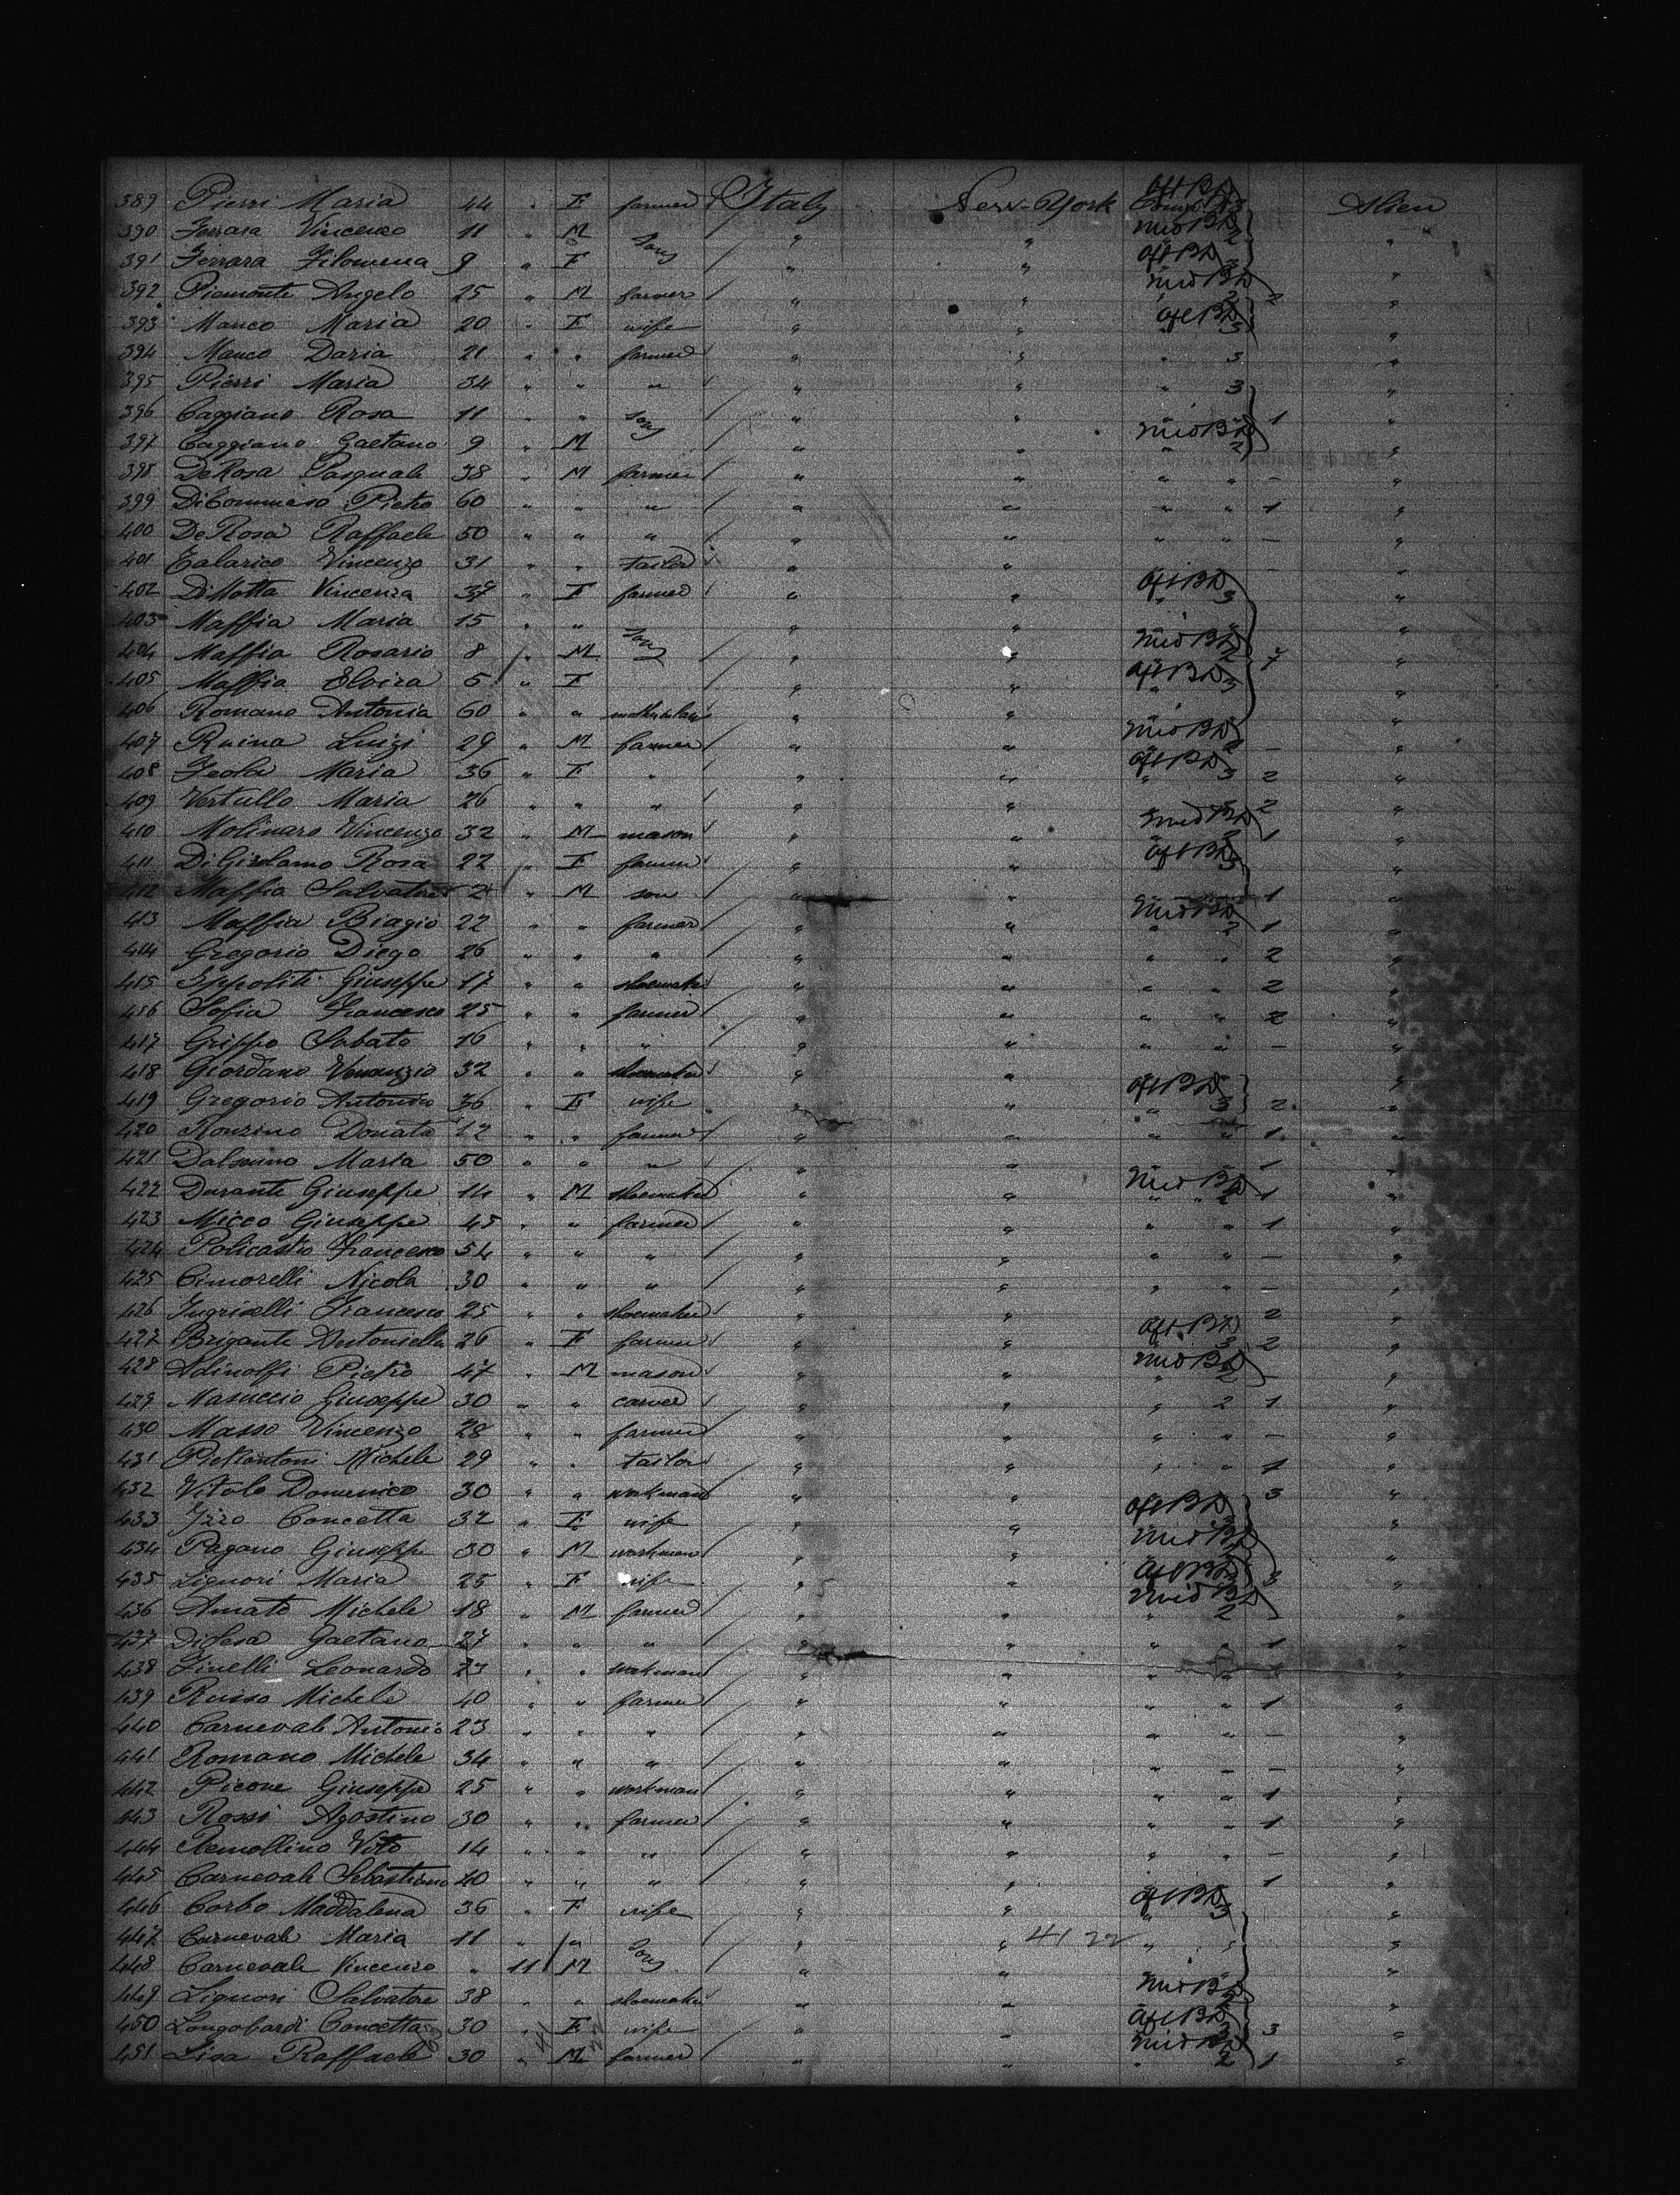 389 Pierri Maria 44 " F farmer Italy New-York Aft BD 3 Alien
390 Ferrara Vincenzo 11 " M sons " " Mid BD 2 "
391 Ferrara Filomena 9 " F " " Aft BD 3 "
392 Piemonte Angelo 25 " M farmer " " Mid BD 2 2 "
393 Manco Maria 20 " F wife " " Aft BD 3 "
394 Manco Daria 21 " " farmer " " " 3 "
395 Pierri Maria 34 " " " " " " 3 "
396 Caggiano Rosa 11 " " sons " " 1 "
397 Caggiano Gaetano 9 " M " " Mid BD 2 "
398 DeRosa Pasquale 38 " M farmer " " " " - "
399 Pietro 60 " " " " " " " 1 "
400 DeRosa Raffaele 50 " " " " " " " - "
401 Talarico Vincenzo 31 " " tailor " " " " - "
402 DiMotta Vincenza 37 " F farmer " " Aft BD 3 "
403 Maffia Maria 15 " " " " " "
404 Maffia Rosario 8 " M sons " " Mid BD 2 7 "
405 Maffia Elvira 5 " F " " Aft BD 3 "
406 Romano Antonia 60 " " motherinlaw " " "
407 Ruina Luigi 29 " M farmer " " Mid BD 2 - "
408 Feola Maria 36 " F " " " Aft BD 3 2 "
409 Vertullo Maria 26 " " " " " " 2 "
410 Molinaro Vincenzo 32 " M mason " " Mid BD 2 1 "
411 DiGirolamo Rosa 22 " F farmer " " Aft BD 3 "
412 Maffia Salvatore 2 " M son " " 1 "
413 Maffia Biagio 22 " " farmer " " Mid BD 2 1 "
414 Gregorio Diego 26 " " " " " " " 2 "
415 Ippoliti Giuseppe 17 " " shoemaker " " " " 2 "
416 Sofia Francesco 25 " " farmer " " " " 2 "
417 Grippo Sabato 16 " " " " " " " - "
418 Giordano Venanzio 32 " " shoemaker " " "
419 Gregorio Antonia 36 " F wife " " Aft BD 3 2 "
420 Donata 12 " " farmer " " " " 1 "
421 Maria 50 " " " " " 1 "
422 Durante Giuseppe 14 " M shoemaker " " Mid BD 2 1 "
423 Micco Giuseppe 45 " " farmer " " " " 1 "
424 Policastio Francesco 54 " " " " " " " - "
425 Cimorelli Nicola 30 " " " " " " " - "
426 Francesco 25 " " shoemaker " " 2 "
427 Brigante Antoniella 26 " F farmer " " Aft BD 3 2 "
428 Adinolfi Pietro 47 " M mason " " Mid BD 2 - "
429 Masuccio Giuseppe 30 " " carver " " " 2 1 "
430 Masso Vincenzo 28 " " farmer " " " " - "
431 Michele 29 " " tailor " " " " 1 "
432 Vitolo Domenico 30 " " workman " " 3 "
433 Izzo Concetta 32 " F wife " " Aft BD 3 "
434 Pagano Giuseppe 30 " M workman " " Mid BD 2 "
435 Liguori Maria 25 " F wife " " Aft BD 3 3 "
436 Amato Michele 18 " M farmer " " Mid BD 2 "
437 Gaetano 27 " " " " " " " 1 "
438 Finelli Leonardo 23 " " workman " " " "
439 Russo Michele 40 " " farmer " " " " 1 "
440 Carnevale Antonio 23 " " " " " " " - "
441 Romano Michele 34 " " " " " " " - "
442 Picone Giuseppe 25 " " workman " " " " 1 "
443 Rossi Agostino 30 " " farmer " " " " 1 "
444 Remollino Vito 14 " " " " " " " - "
445 Carnevale Sebastiano 40 " " " " " 1 "
446 Corbo Maddalena 36 " F wife " " Aft BD 3 "
447 Carnevale Maria 11 " " sons " " 4122 " " "
448 Carnevale Vincenzo " 11 M " " "
449 Liguori Salvatore 38 " " shoemaker " " Mid BD 2 "
450 Longobardi Concetta 30 " F wife " " Aft BD 3 3 "
451 Lisa Raffaele 30 " M farmer " " Mid BD 2 1 "